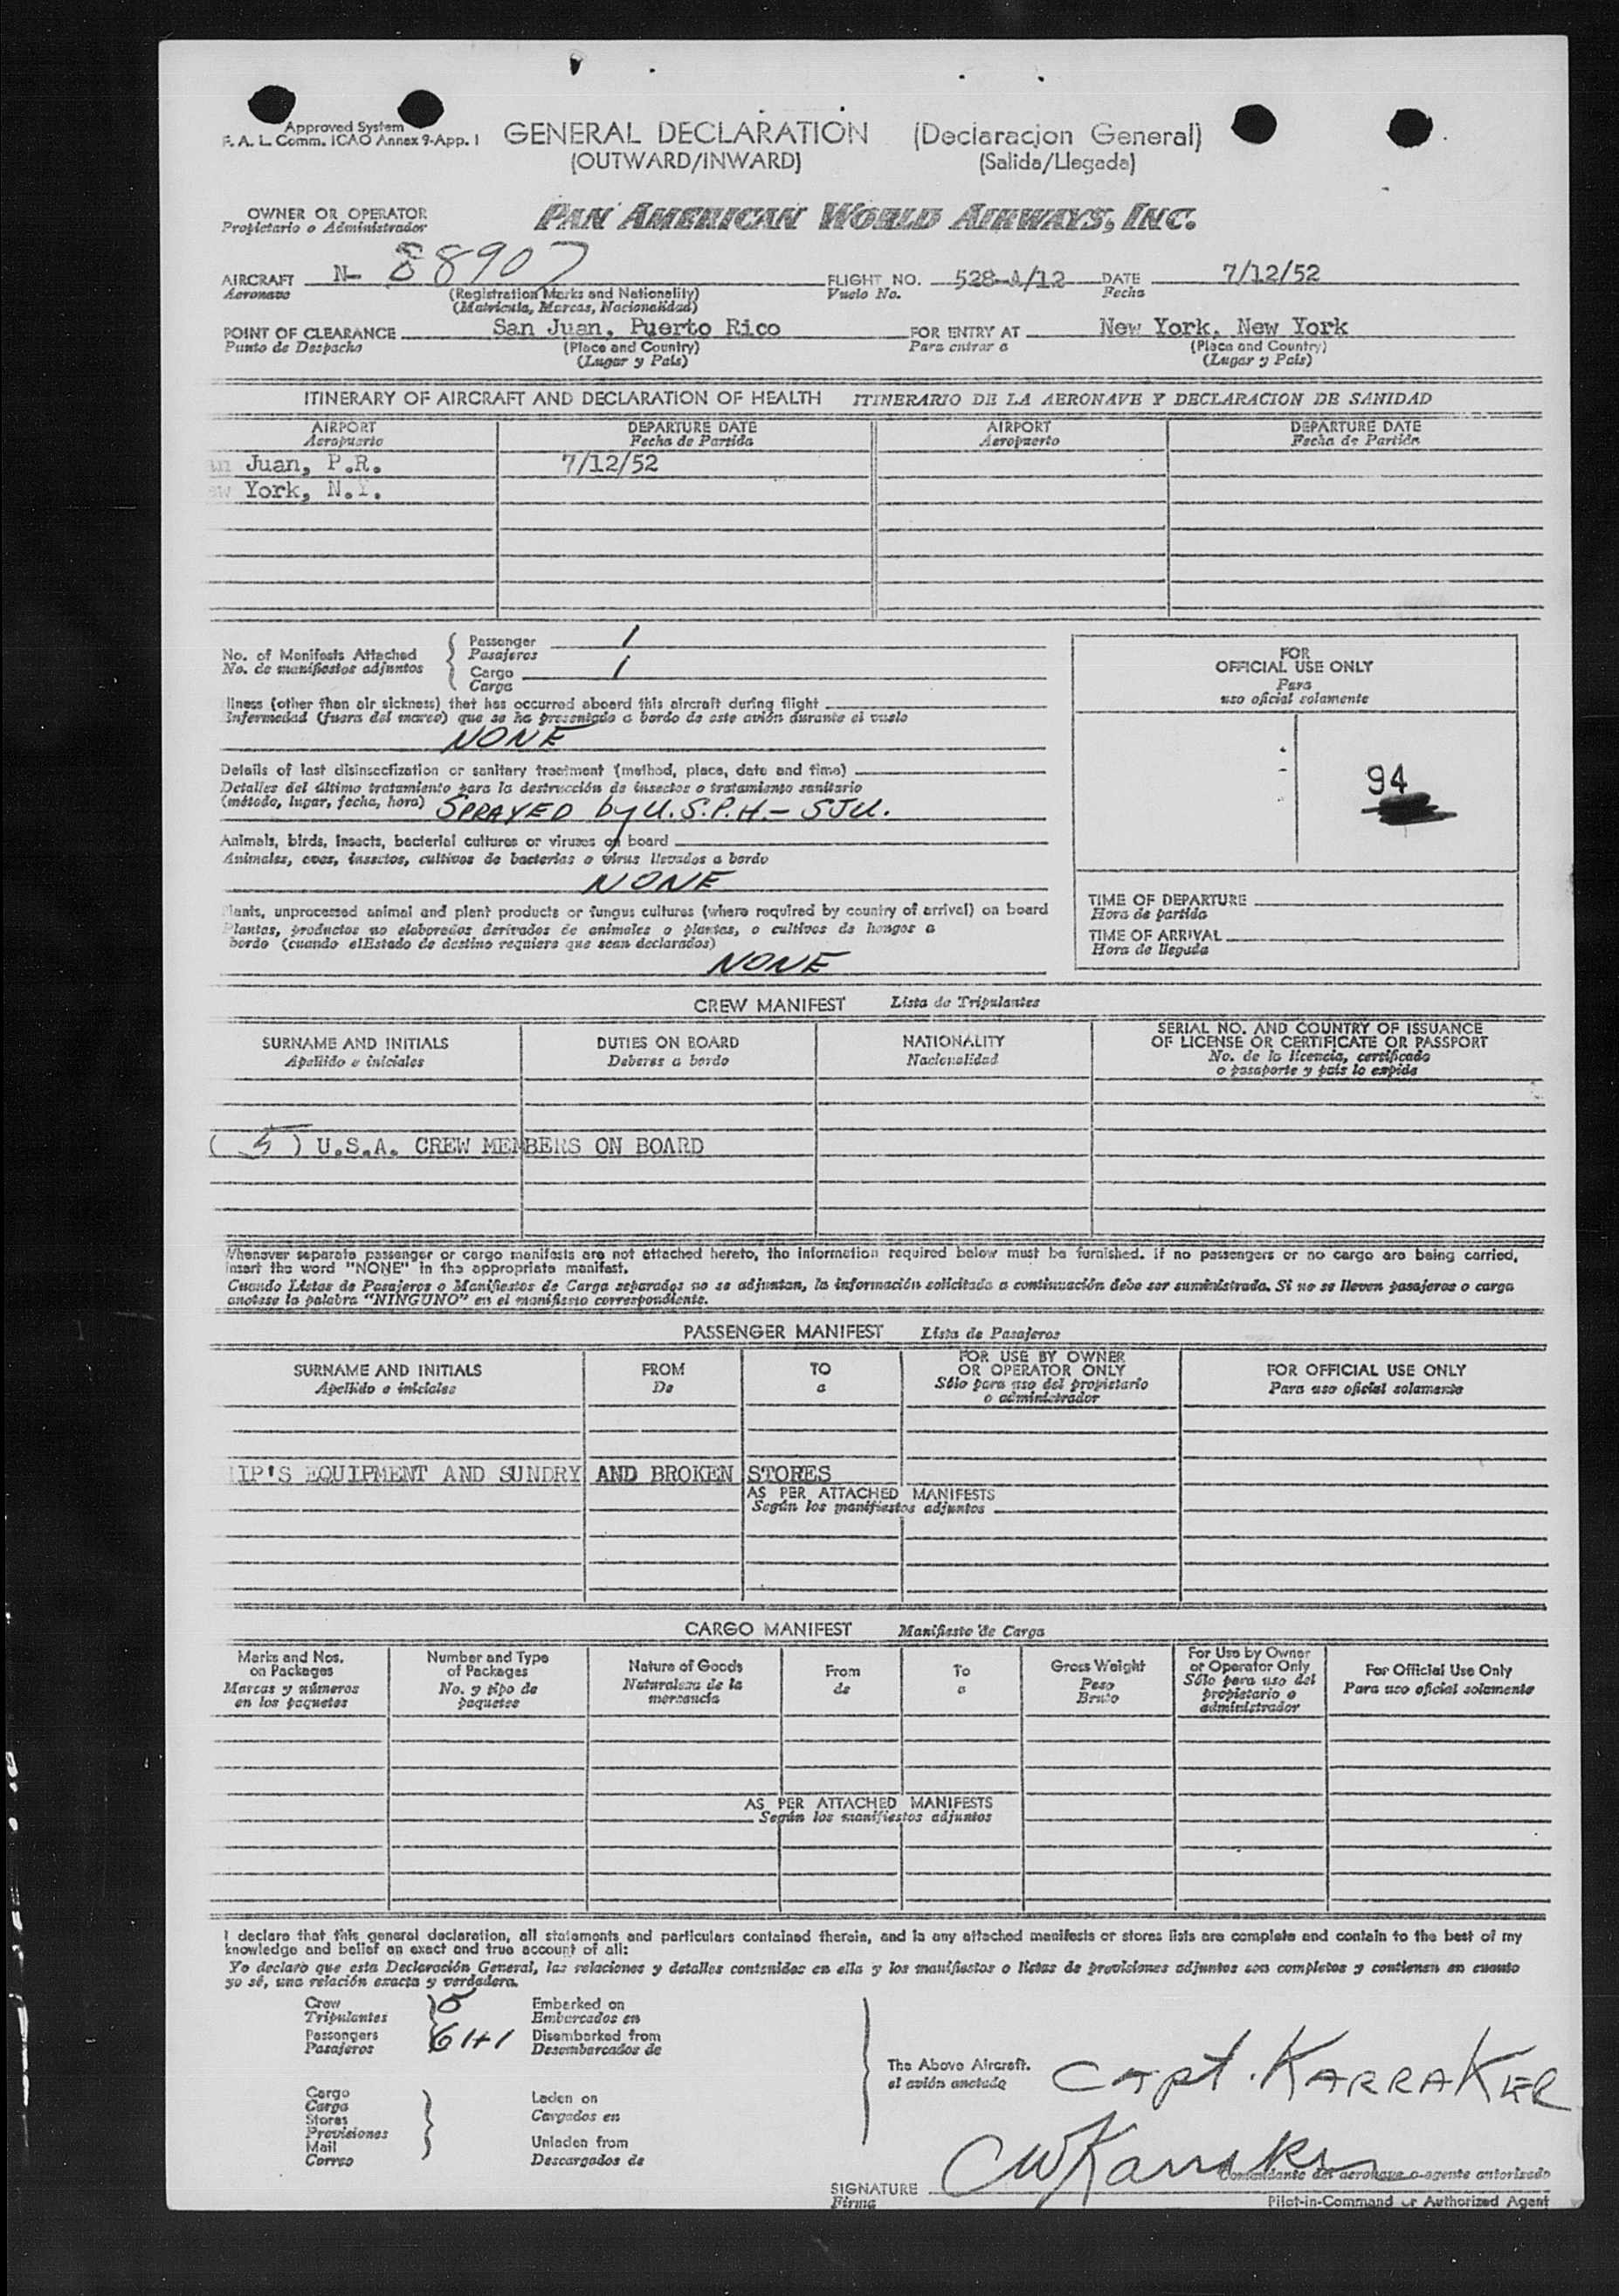 Approved System
F. A. L. Comm. ICAO Annex 9-App. 1
GENERAL DECLARATION (Declaracion General)
(OUTWARD/INWARD) (Salida/Llegada)
OWNER OR OPERATOR
Propietario o Administrador
PAN AMERICAN WORLD AIRWAYS, INC.
AIRCRAFT N- 88907 FLIGHT NO. 528-A/12 DATE 7/12/52
Aeronave (Registration Marks and Nationality) Vuelo No. Fecha
(Matricula, Marcas, Nacionalidad)
POINT OF CLEARANCE San Juan, Puerto Rico FOR ENTRY AT New York, New York
Punto de Despacho (Place and Country) Para entrar a (Place and Country)
(Lugar y País) (Lugar y País)
ITINERARY OF AIRCRAFT AND DECLARATION OF HEALTH ITINERARIO DE LA AERONAVE Y DECLARACION DE SANIDAD
AIRPORT DEPARTURE DATE AIRPORT DEPARTURE DATE
Aeropuerto Fecha de Partida Aeropuerto Fecha de Partida
an Juan, P.R. 7/12/52
ew York, N.Y.
No. of Manifests Attached
No. de manifiestos adjuntos
Passenger 1
Pasajeros
Cargo 1
Carga
FOR
OFFICIAL USE ONLY
Para
uso oficial solamente
94
llness (other than air sickness) that has occurred aboard this aircraft during flight
Enfermedad (fuera del mareo) que se ha presentado a bordo de este avión durante el vuelo
NONE
Details of last disinsectization or sanitary treatment (method, place, date and time)
Detalles del último tratamiento para la destrucción de insectos o tratamiento sanitario
(método, lugar, fecha, hora) SPRAYED by U.S.P.H.- SJU.
Animals, birds, insects, bacterial cultures or viruses on board
Animales, aves, insectos, cultivos de bacterias o virus llevados a bordo
NONE
Plants, unprocessed animal and plant products or fungus cultures (where required by country of arrival) on board
Plantas, productos no elaborados derivados de animales o plantas, o cultivos de hongos a
bordo (cuando elEstado de destino requiera que sean declarados)
NONE
TIME OF DEPARTURE
Hora de partida
TIME OF ARRIVAL
Hora de llegada
CREW MANIFEST Lista de Tripulantes
SURNAME AND INITIALS DUTIES ON BOARD NATIONALITY SERIAL NO. AND COUNTRY OF ISSUANCE
OF LICENSE OR CERTIFICATE OR PASSPORT
Apellido e iniciales Deberes a bordo Nacionalidad No. de la licencia, certificado
o pasaporte y país lo expide
( 5 ) U.S.A. CREW MEMBERS ON BOARD
Whenever separate passenger or cargo manifests are not attached hereto, the information required below must be furnished. If no passengers or no cargo are being carried,
insert the word "NONE" in the appropriate manifest.
Cuando Listas de Pasajeros o Manifiestos de Carga separados no se adjuntan, la información solicitada a continuación debe ser suministrada. Si no se lleven pasajeros o carga
anotase la palabra "NINGUNO" en el manifiesto correspondiente.
PASSENGER MANIFEST Lista de Pasajeros
SURNAME AND INITIALS FROM TO FOR USE BY OWNER
OR OPERATOR ONLY FOR OFFICIAL USE ONLY
Apellido e iniciales De a Sólo para uso del propietario
o administrador Para uso oficial solamente
IP'S EQUIPMENT AND SUNDRY AND BROKEN STORES
AS PER ATTACHED MANIFESTS
Según los manifiestos adjuntos
CARGO MANIFEST Manifiesto de Carga
Marks and Nos.
on Packages
Marcas y números
en los paquetes
Number and Type
of Packages
No. y tipo de
paquetes
Nature of Goods
Naturaleza de la
mercancía
From
de
To
a
Gross Weight
Peso
Bruto
For Use by Owner
or Operator Only
Sólo para uso del
propietario o
administrador
For Official Use Only
Para uso oficial solamente
AS PER ATTACHED MANIFESTS
Según los manifiestos adjuntos
I declare that this general declaration, all statements and particulars contained therein, and in any attached manifests or stores lists are complete and contain to the best of my
knowledge and belief an exact and true account of all:
Yo declaro que esta Declaración General, las relaciones y detalles contenidos en ella y los manifiestos o listas de provisiones adjuntos son completos y contienen en cuanto
yo sé, una relación exacta y verdadera.
Crew 5 Embarked on
Tripulantes Embarcados en
Passengers 61+1 Disembarked from
Pasajeros Desembarcados de
Cargo
Carga
Stores
Provisiones
Mail
Correo
Laden on
Cargados en
Unladen from
Descargados de
The Above Aircraft.
el avión anotado
CAPT. KARRAKER
CWKarraker
SIGNATURE
Firma
Comandante del aeronave o agente autorizado
Pilot-in-Command or Authorized Agent